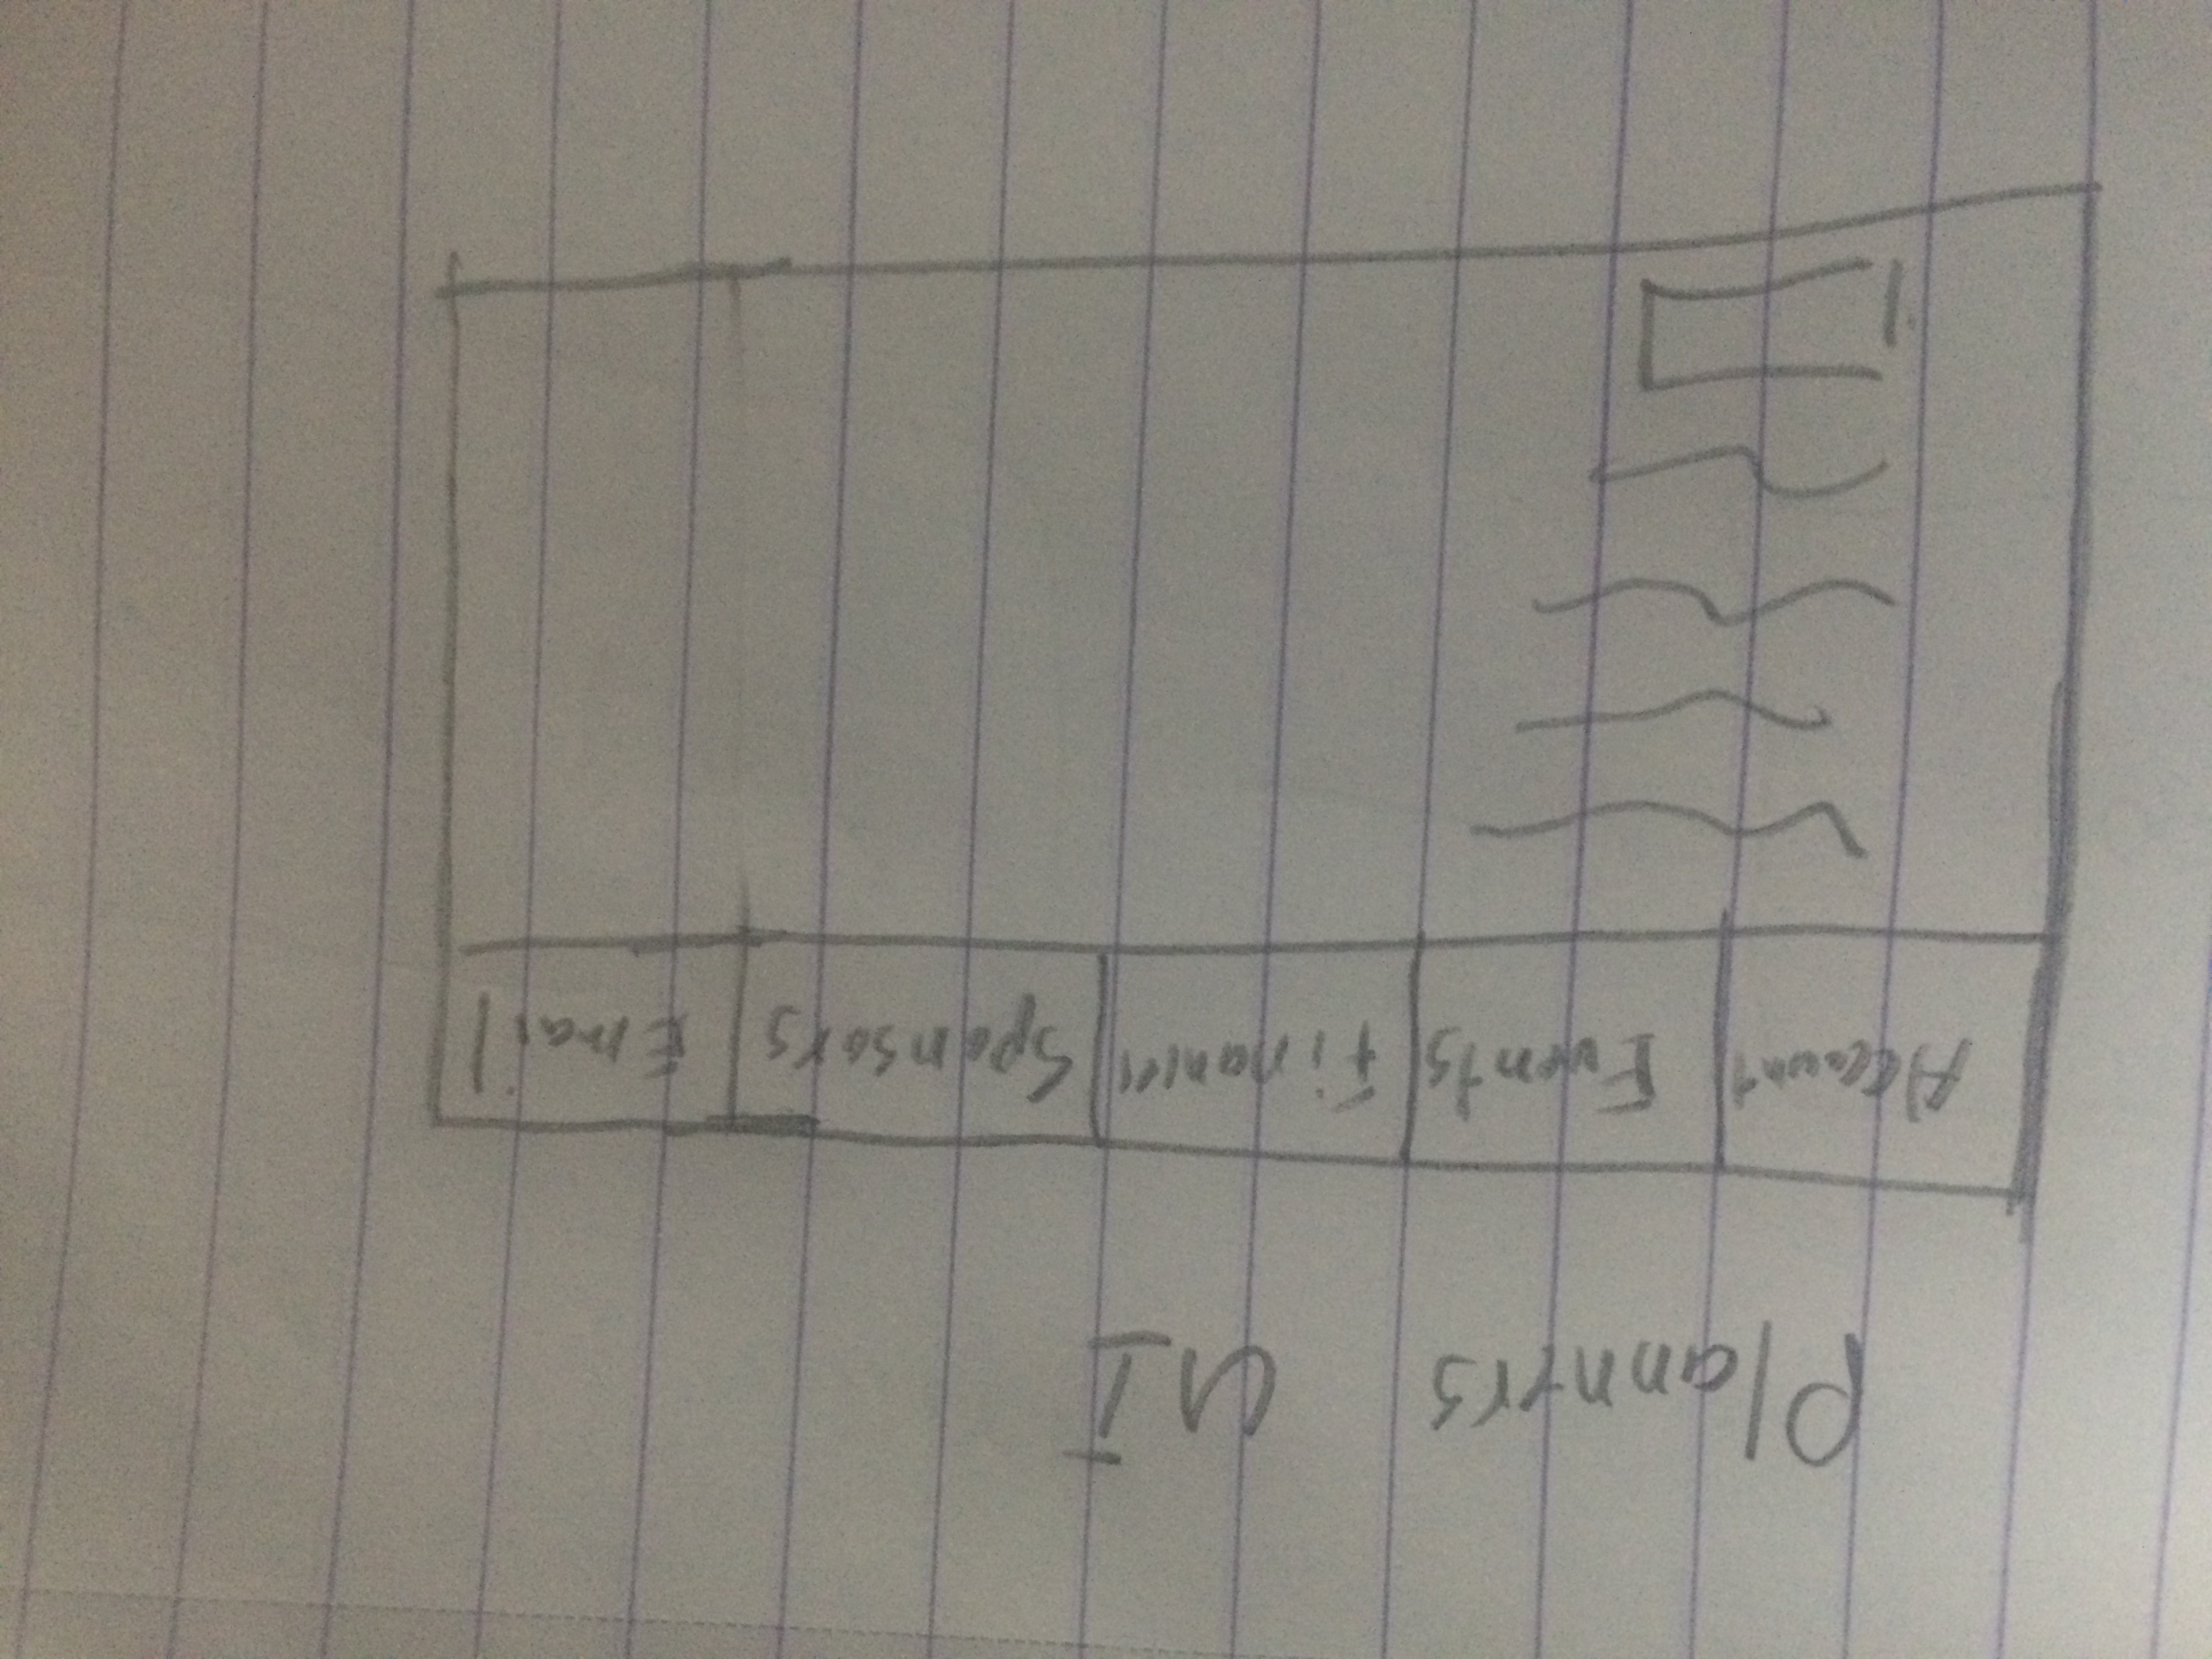 Planners UI
Account Events Finances Sponsors Email